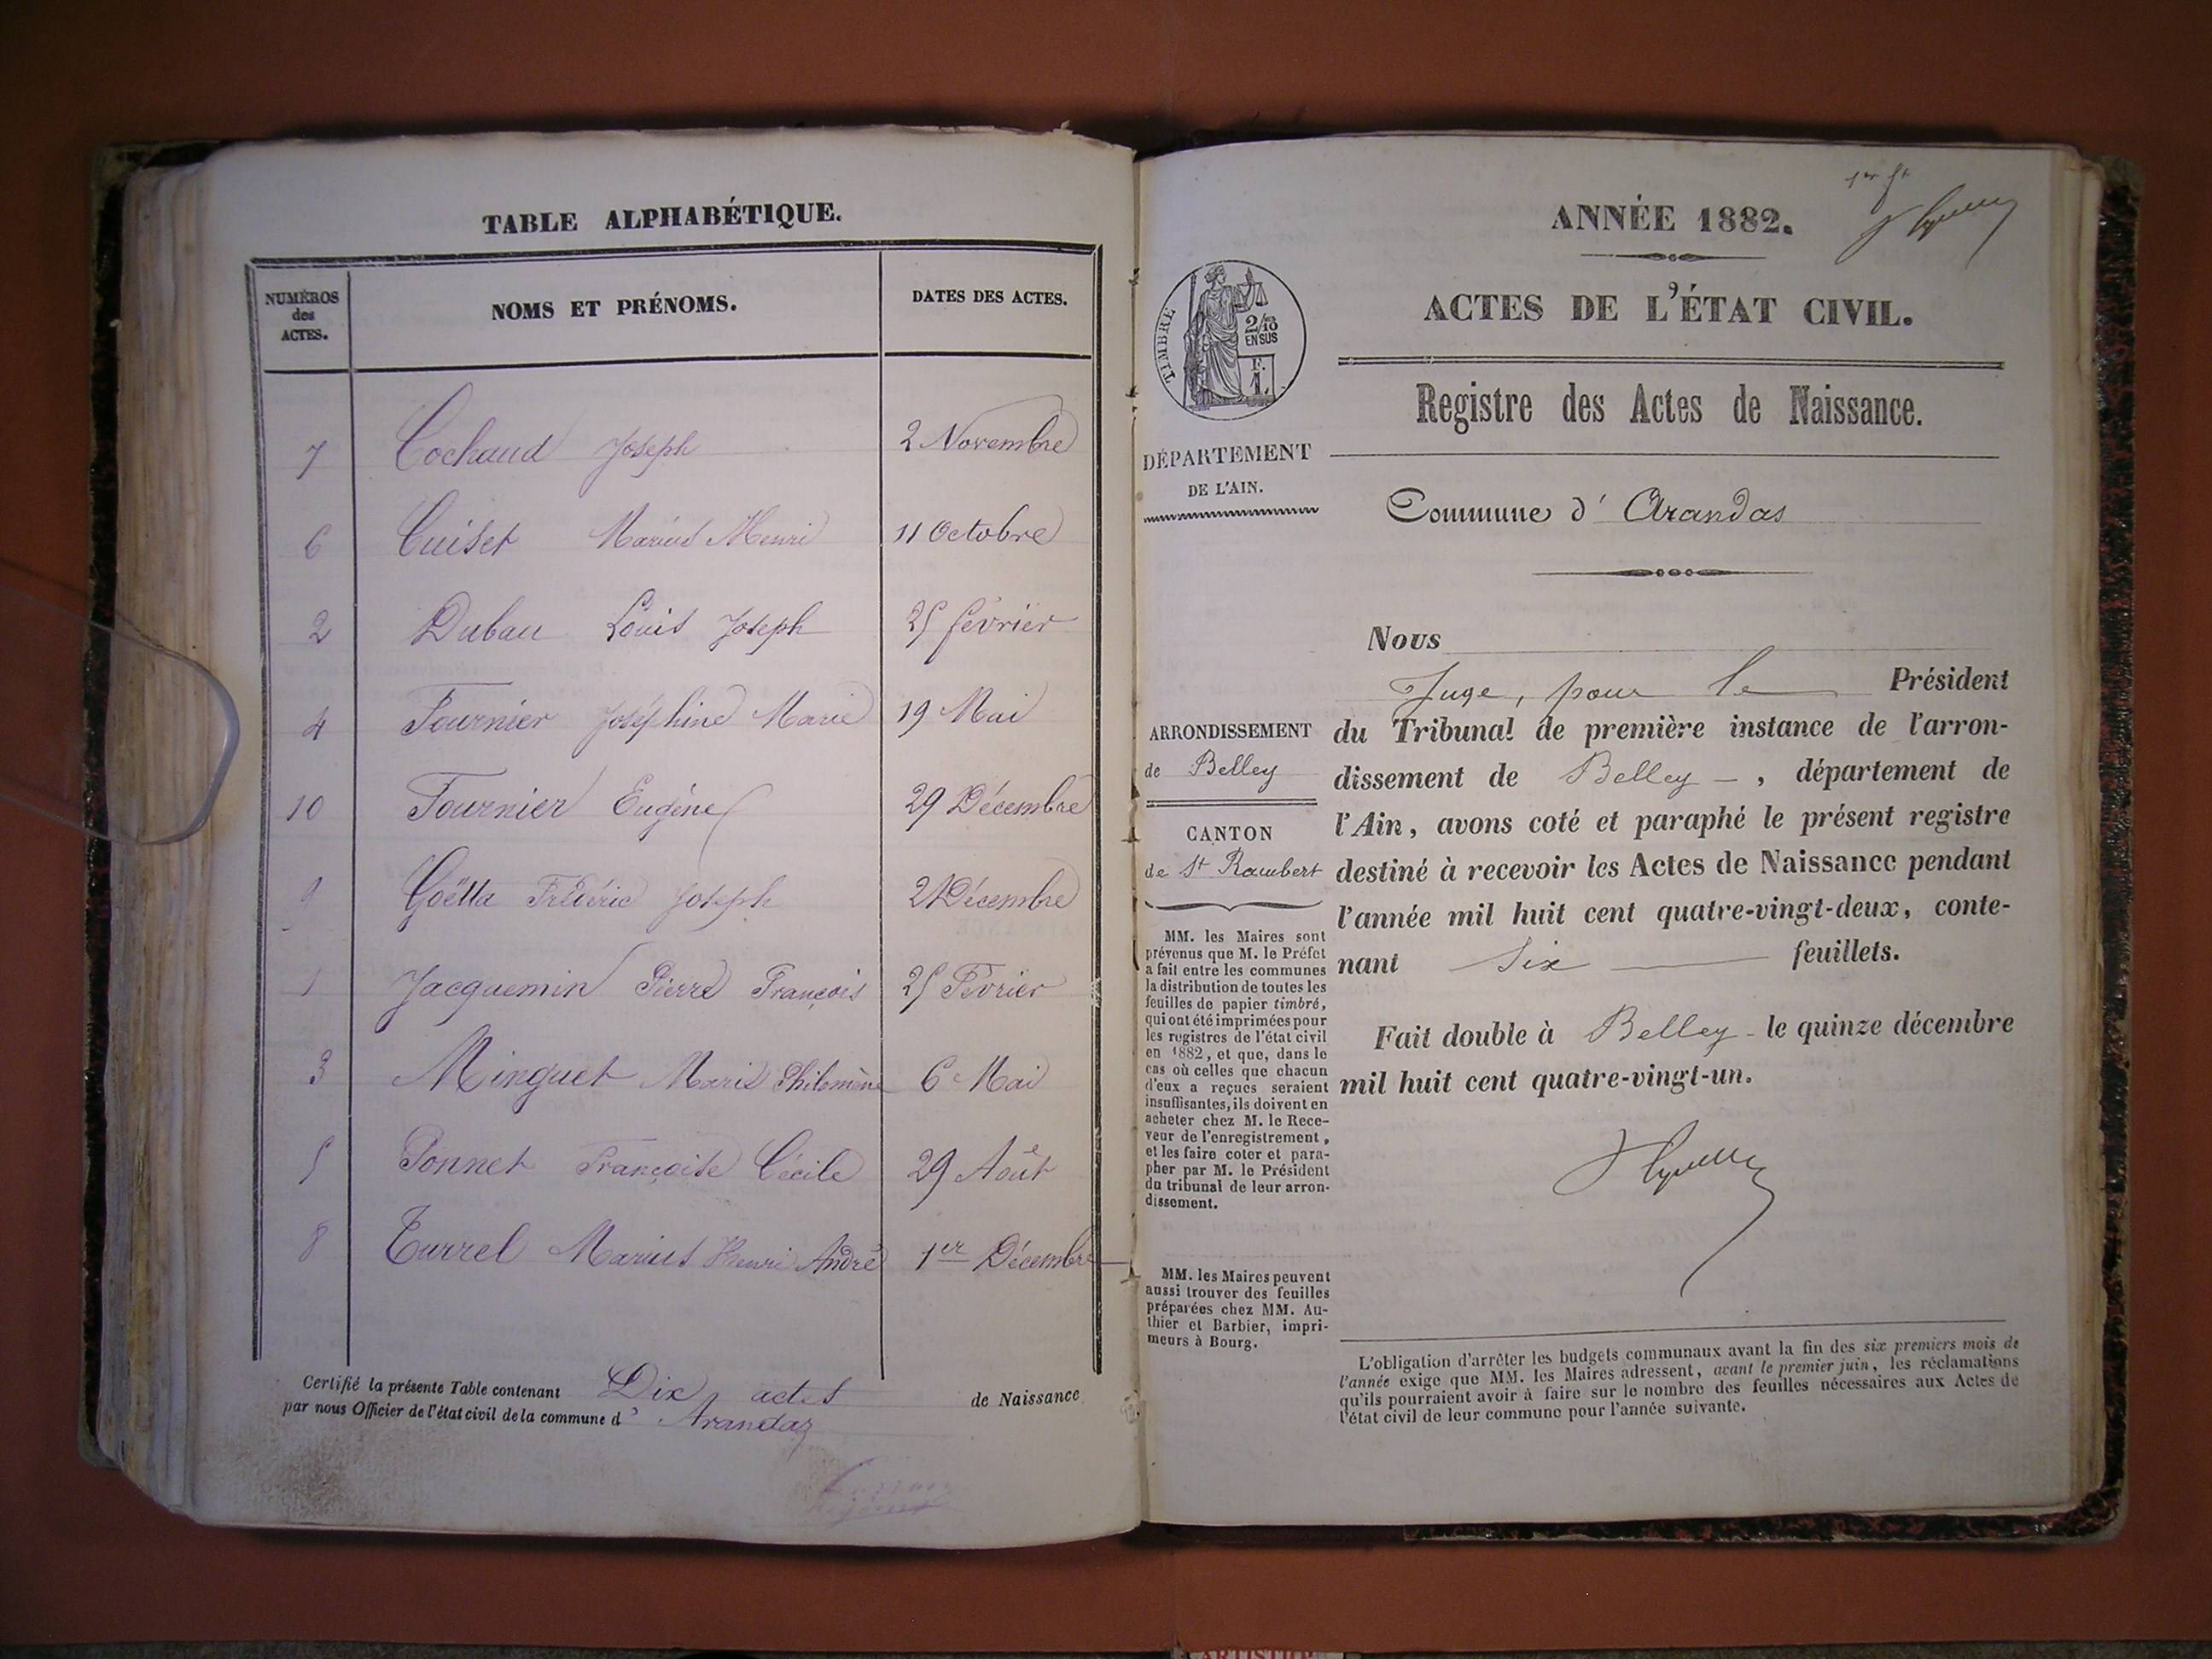 TABLE ALPHABÉTIQUE.
NUMÉROS
des
ACTES.
NOMS ET PRÉNOMS.
DATES DES ACTES.
7 Cochaud Joseph 2 Novembre
6 Cuiset Marius Henri 11 Octobre
2 Dubau Louis Joseph 25 février
4 Fournier Joséphine Marie 19 Mai
10 Fournier Eugène 29 Décembre
9 Goëtta Frédéric Joseph 21 Décembre
1 Jacquemin Pierre François 25 Février
3 Minguet Marie Philomène 6 Mai
5 Ponnet Françoise Cécile 29 Août
8 Turrel Marius Henri André 1er Décembre
Certifié la présente Table contenant Dix actes de Naissance
par nous Officier de l'état civil de la commune d' Arandaz
ANNÉE 1882.
ACTES DE L'ÉTAT CIVIL.
Registre des Actes de Naissance.
TIMBRE
2/10
EN SUS
F.
1.
DÉPARTEMENT
DE L'AIN.
Commune d' Arandas
Nous
Juge, pour le Président
du Tribunal de première instance de l'arron-
dissement de Belley - , département de
l'Ain, avons coté et paraphé le présent registre
destiné à recevoir les Actes de Naissance pendant
l'année mil huit cent quatre-vingt-deux, conte-
nant Six feuillets.
Fait double à Belley - le quinze décembre
mil huit cent quatre-vingt-un.
ARRONDISSEMENT
de Belley
CANTON
de St Rambert
MM. les Maires sont
prévenus que M. le Préfet
a fait entre les communes
la distribution de toutes les
feuilles de papier timbré,
qui ont été imprimées pour
les registres de l'état civil
en 1882, et que, dans le
cas où celles que chacun
d'eux a reçues seraient
insuffisantes, ils doivent en
acheter chez M. le Rece-
veur de l'enregistrement,
et les faire coter et para-
pher par M. le Président
du tribunal de leur arron-
dissement.
MM. les Maires peuvent
aussi trouver des feuilles
préparées chez MM. Au-
thier et Barbier, impri-
meurs à Bourg.
L'obligation d'arrêter les budgets communaux avant la fin des six premiers mois de
l'année exige que MM. les Maires adressent, avant le premier juin, les réclamations
qu'ils pourraient avoir à faire sur le nombre des feuilles nécessaires aux Actes de
l'état civil de leur commune pour l'année suivante.